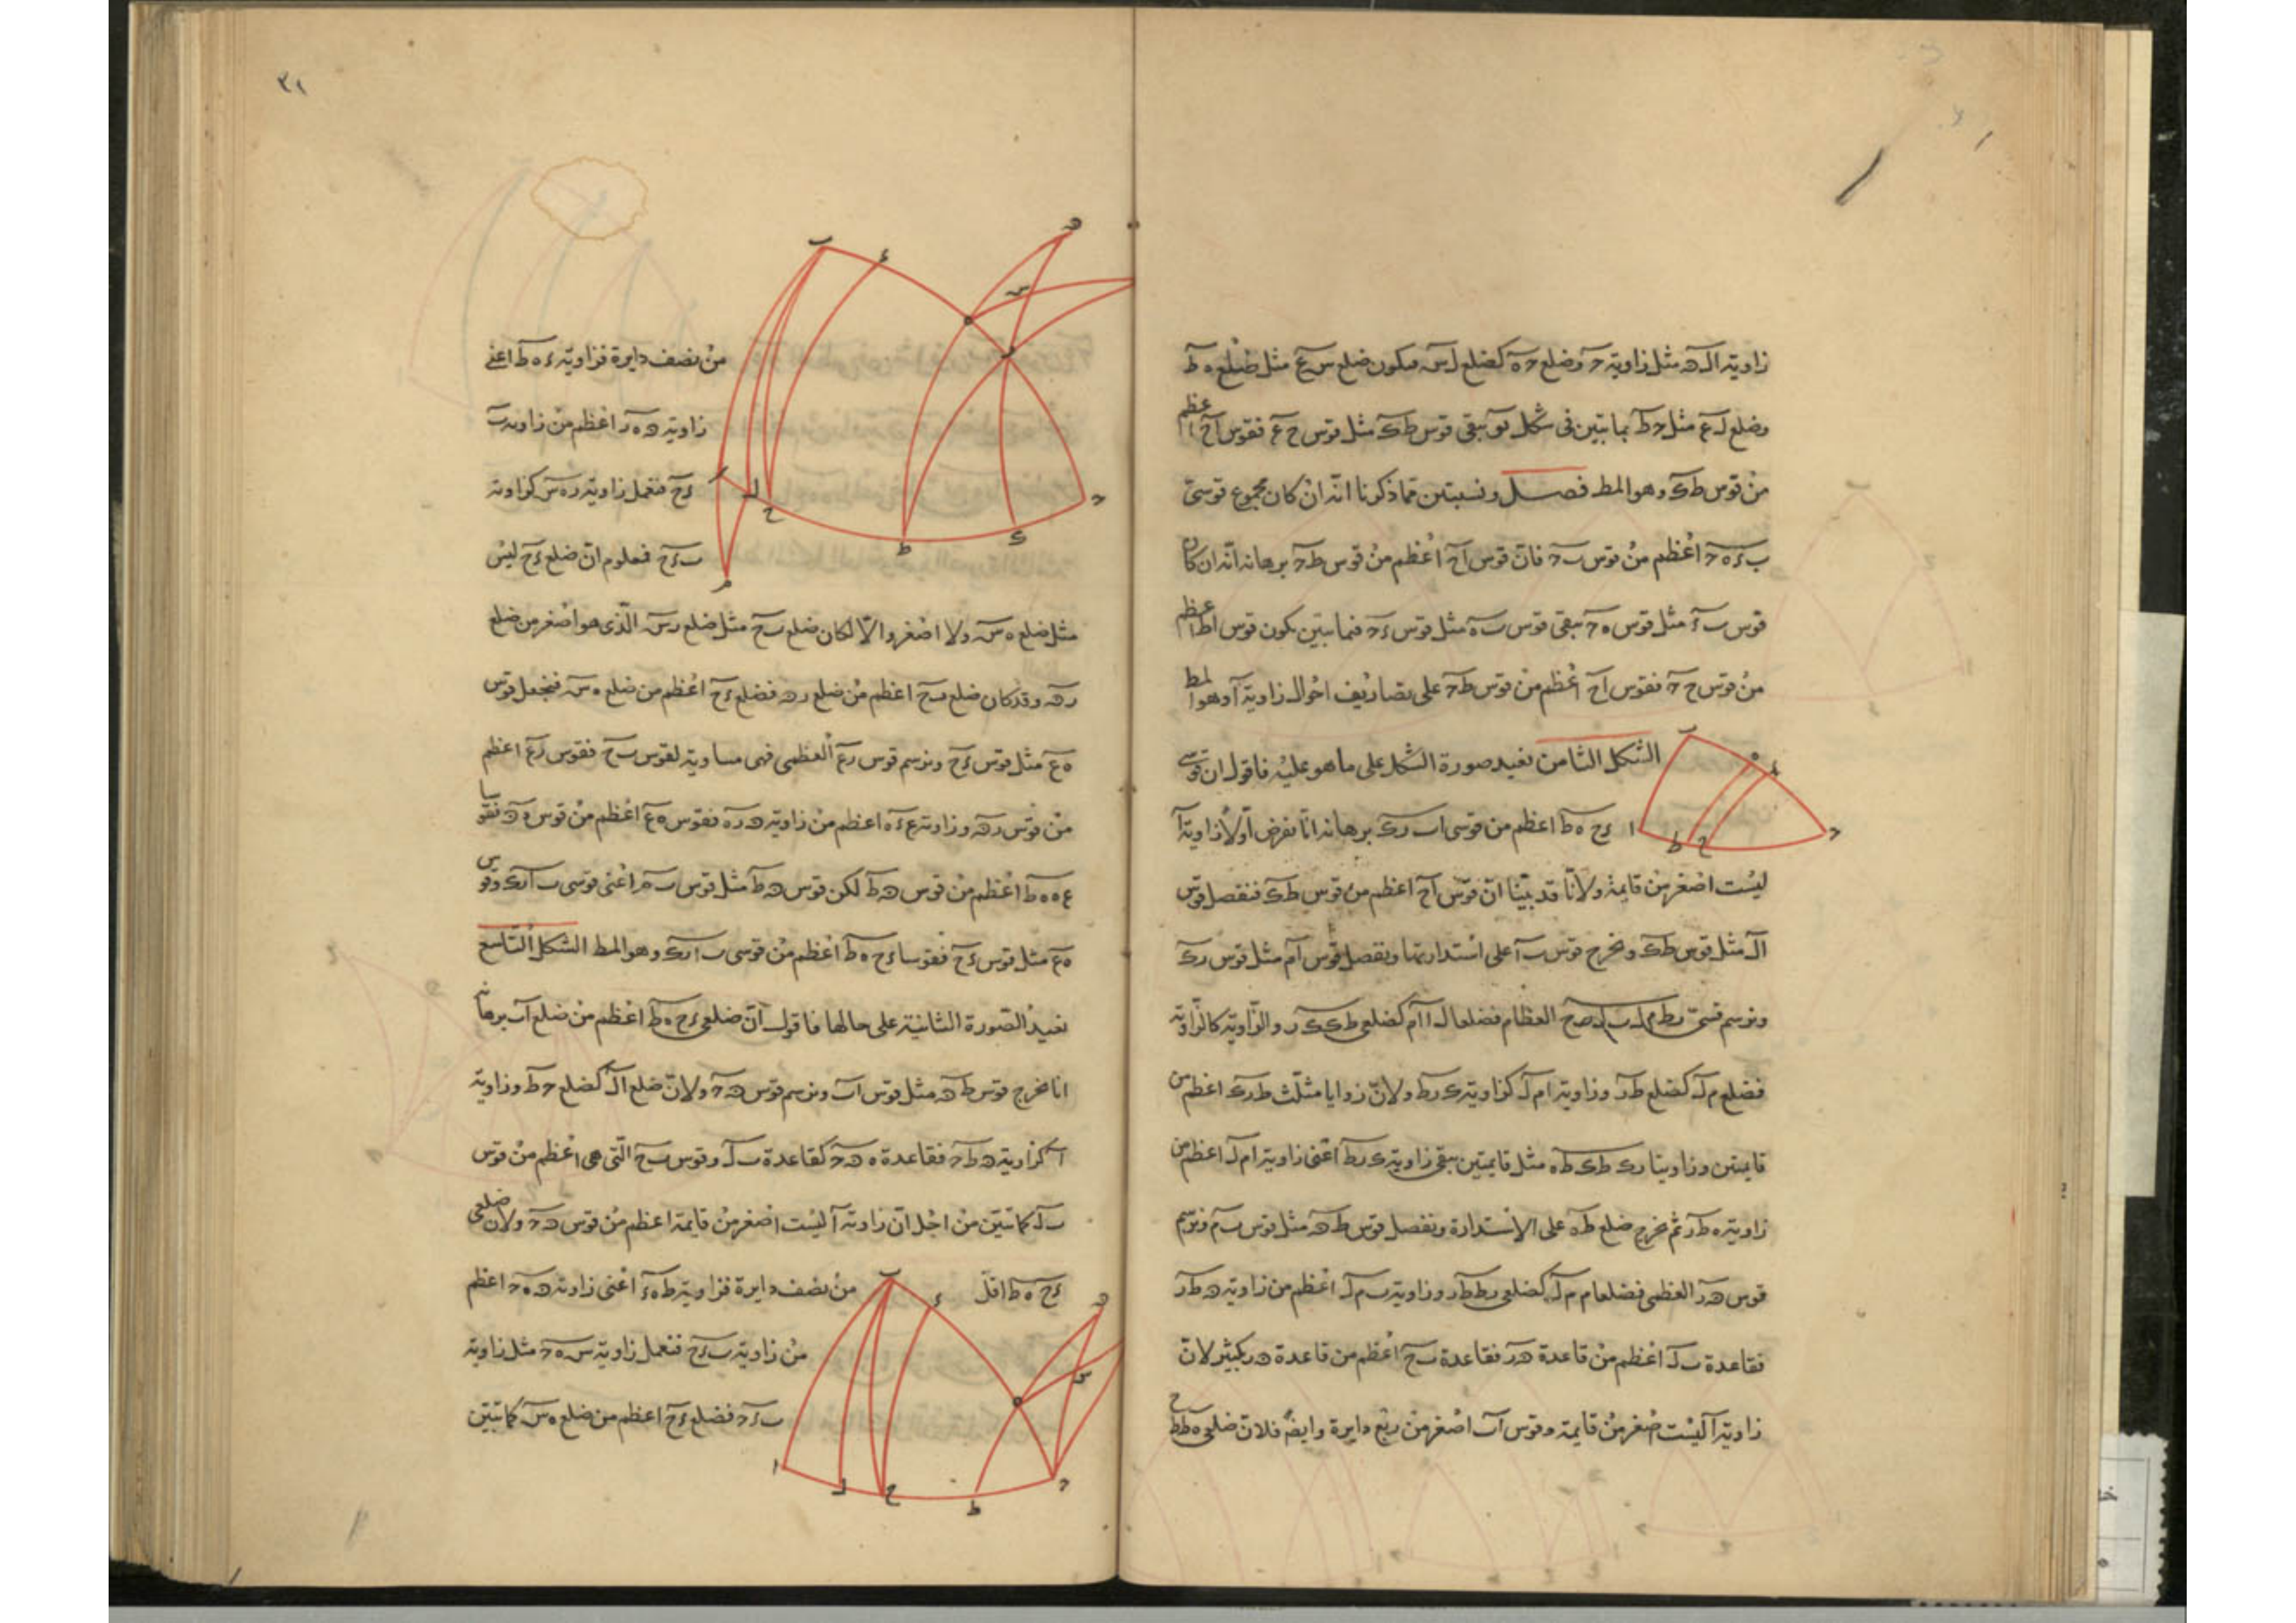 زاوية ال‍ه مثل زاوية ح وضلع ح ه كضلع ل س فيكون ضلع س ع مثل ضلع ه ط
وضلع ل ع مثل ح ط بما بين في شكل يبقى قوس ط ك مثل قوس ح ع فقوس ا ح اعظم
من قوس ط ك وهو المط فصل ونستبين مما ذكرنا انه ان كان مجموع قوسي
ب ء ه ح اعظم من قوس ب ح فان قوس ا ح اعظم من قوس ط ح برهانه انه ان كان
قوس ب ء مثل قوس ه ح يبقى قوس ب ه مثل قوس ء ح فيما بين يكون قوس ا ط اعظم
من قوس ح ح فقوس ا ح اعظم من قوس ط ح على تصاريف احوال زاوية ا وهو المط
الشكل الثامن نعيد صورة الشكل على ما هو عليه فاقول ان قوسي
ء ح ه ط اعظم من قوسي ا ب ر ك برهانه انا نفرض اولا زاوية ا
ليست اصغر من قايمة ولانا قد بينا ان قوس ا ح اعظم من قوس ط ك فنفصل قوس
ا ل مثل قوس ط ك ونخرج قوس ب ا على استدارتها ونفصل قوس ا م مثل قوس ر ك
ونرسم قسي ر ط م ل ب ل ب ح العظام فضلعا ل ا ا م كضلعي ط ك ك ر والزاوية كالزاوية
فضلع م ل كضلع ط ر وزاوية ا م ل كزاوية ك ر ط ولان زوايا مثلث ط ر ك اعظم من
قايمتين وزاويتا ر ك ط ك ط ه مثل قايمتين يبقى زاوية ك ر ط اعني زاوية ا م ل اعظم من
زاوية ه ط ر ثم نخرج ضلع ط ه على الاستدارة ونفصل قوس ط ه‍ مثل قوس ب م ونرسم
قوس ه‍ ر العظمى فضلعا م ب م ل كضلعي ه‍ ط ط ر وزاوية ب م ل اعظم من زاوية ه‍ ط ر
فقاعدة ب ل اعظم من قاعدة ه‍ ر فقاعدة ب ح اعظم من قاعدة ه‍ ر بكثير لان
زاوية ا ليست اصغر من قايمة وقوس ا ب اصغر من ربع دايرة وايضا فلان ضلعي ه ط ط ح
٣١
من نصف دايرة فزاوية ء ه ط اعني
زاوية ه‍ ه ر اعظم من زاوية ب
ء ح فنعمل زاوية ر ه س كزاوية
ب ء ح فمعلوم ان ضلع ء ح ليس
مثل ضلع ه س ولا اصغر والا لكان ضلع ب ح مثل ضلع ر س الذي هو اصغر من ضلع
ر ه‍ وقد كان ضلع ب ح اعظم من ضلع ر ه‍ فضلع ء ح اعظم من ضلع ه س فنجعل قوس
ه ع مثل قوس ء ح ونرسم قوس ر ع العظمى فهي مساوية لقوس ب ح فقوس ر ع اعظم
من قوس ر ه‍ وزاوية ع ء ه اعظم من زاوية ه‍ ر ه فقوس ه ع اعظم من قوس ه ه‍ فقوسا
ع ه ه ط اعظم من قوس ه‍ ط لكن قوس ه‍ ط مثل قوس ب م اعني قوسي ب ا ر ك وقوس
ه ع مثل قوس ء ح فقوسا ء ح ه ط اعظم من قوسي ب ا ر ك وهو المط الشكل التاسع
نعيد الصورة الثانية على حالها فاقول ان ضلعي ء ح ه ط اعظم من ضلع ا ب برهانه
انا نخرج قوس ط ه‍ مثل قوس ا ب ونرسم قوس ه‍ ح ولان ضلع ا ل كضلع ح ط وزاوية
ا كزاوية ه‍ ط ح فقاعدة ه‍ ح كقاعدة ب ل وقوس ب ح التي هي اعظم من قوس
ب ل كما تبين من اجل ان زاوية ا ليست اصغر من قايمة اعظم من قوس ه‍ ح ولان ضلعي
ء ح ه ط اقل من نصف دايرة فزاوية ط ه ء اعني زاوية ه‍ ه ح اعظم
من زاوية ب ء ح فنعمل زاوية س ه ح مثل زاوية
ب ء ح فضلع ء ح اعظم من ضلع ه س كما تبين